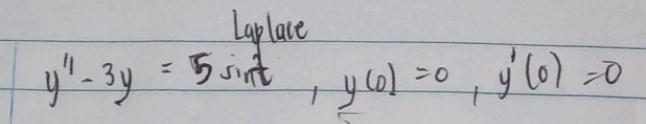 Laplace
y'' - 3y = 5 sint , y(0) = 0 , y'(0) = 0